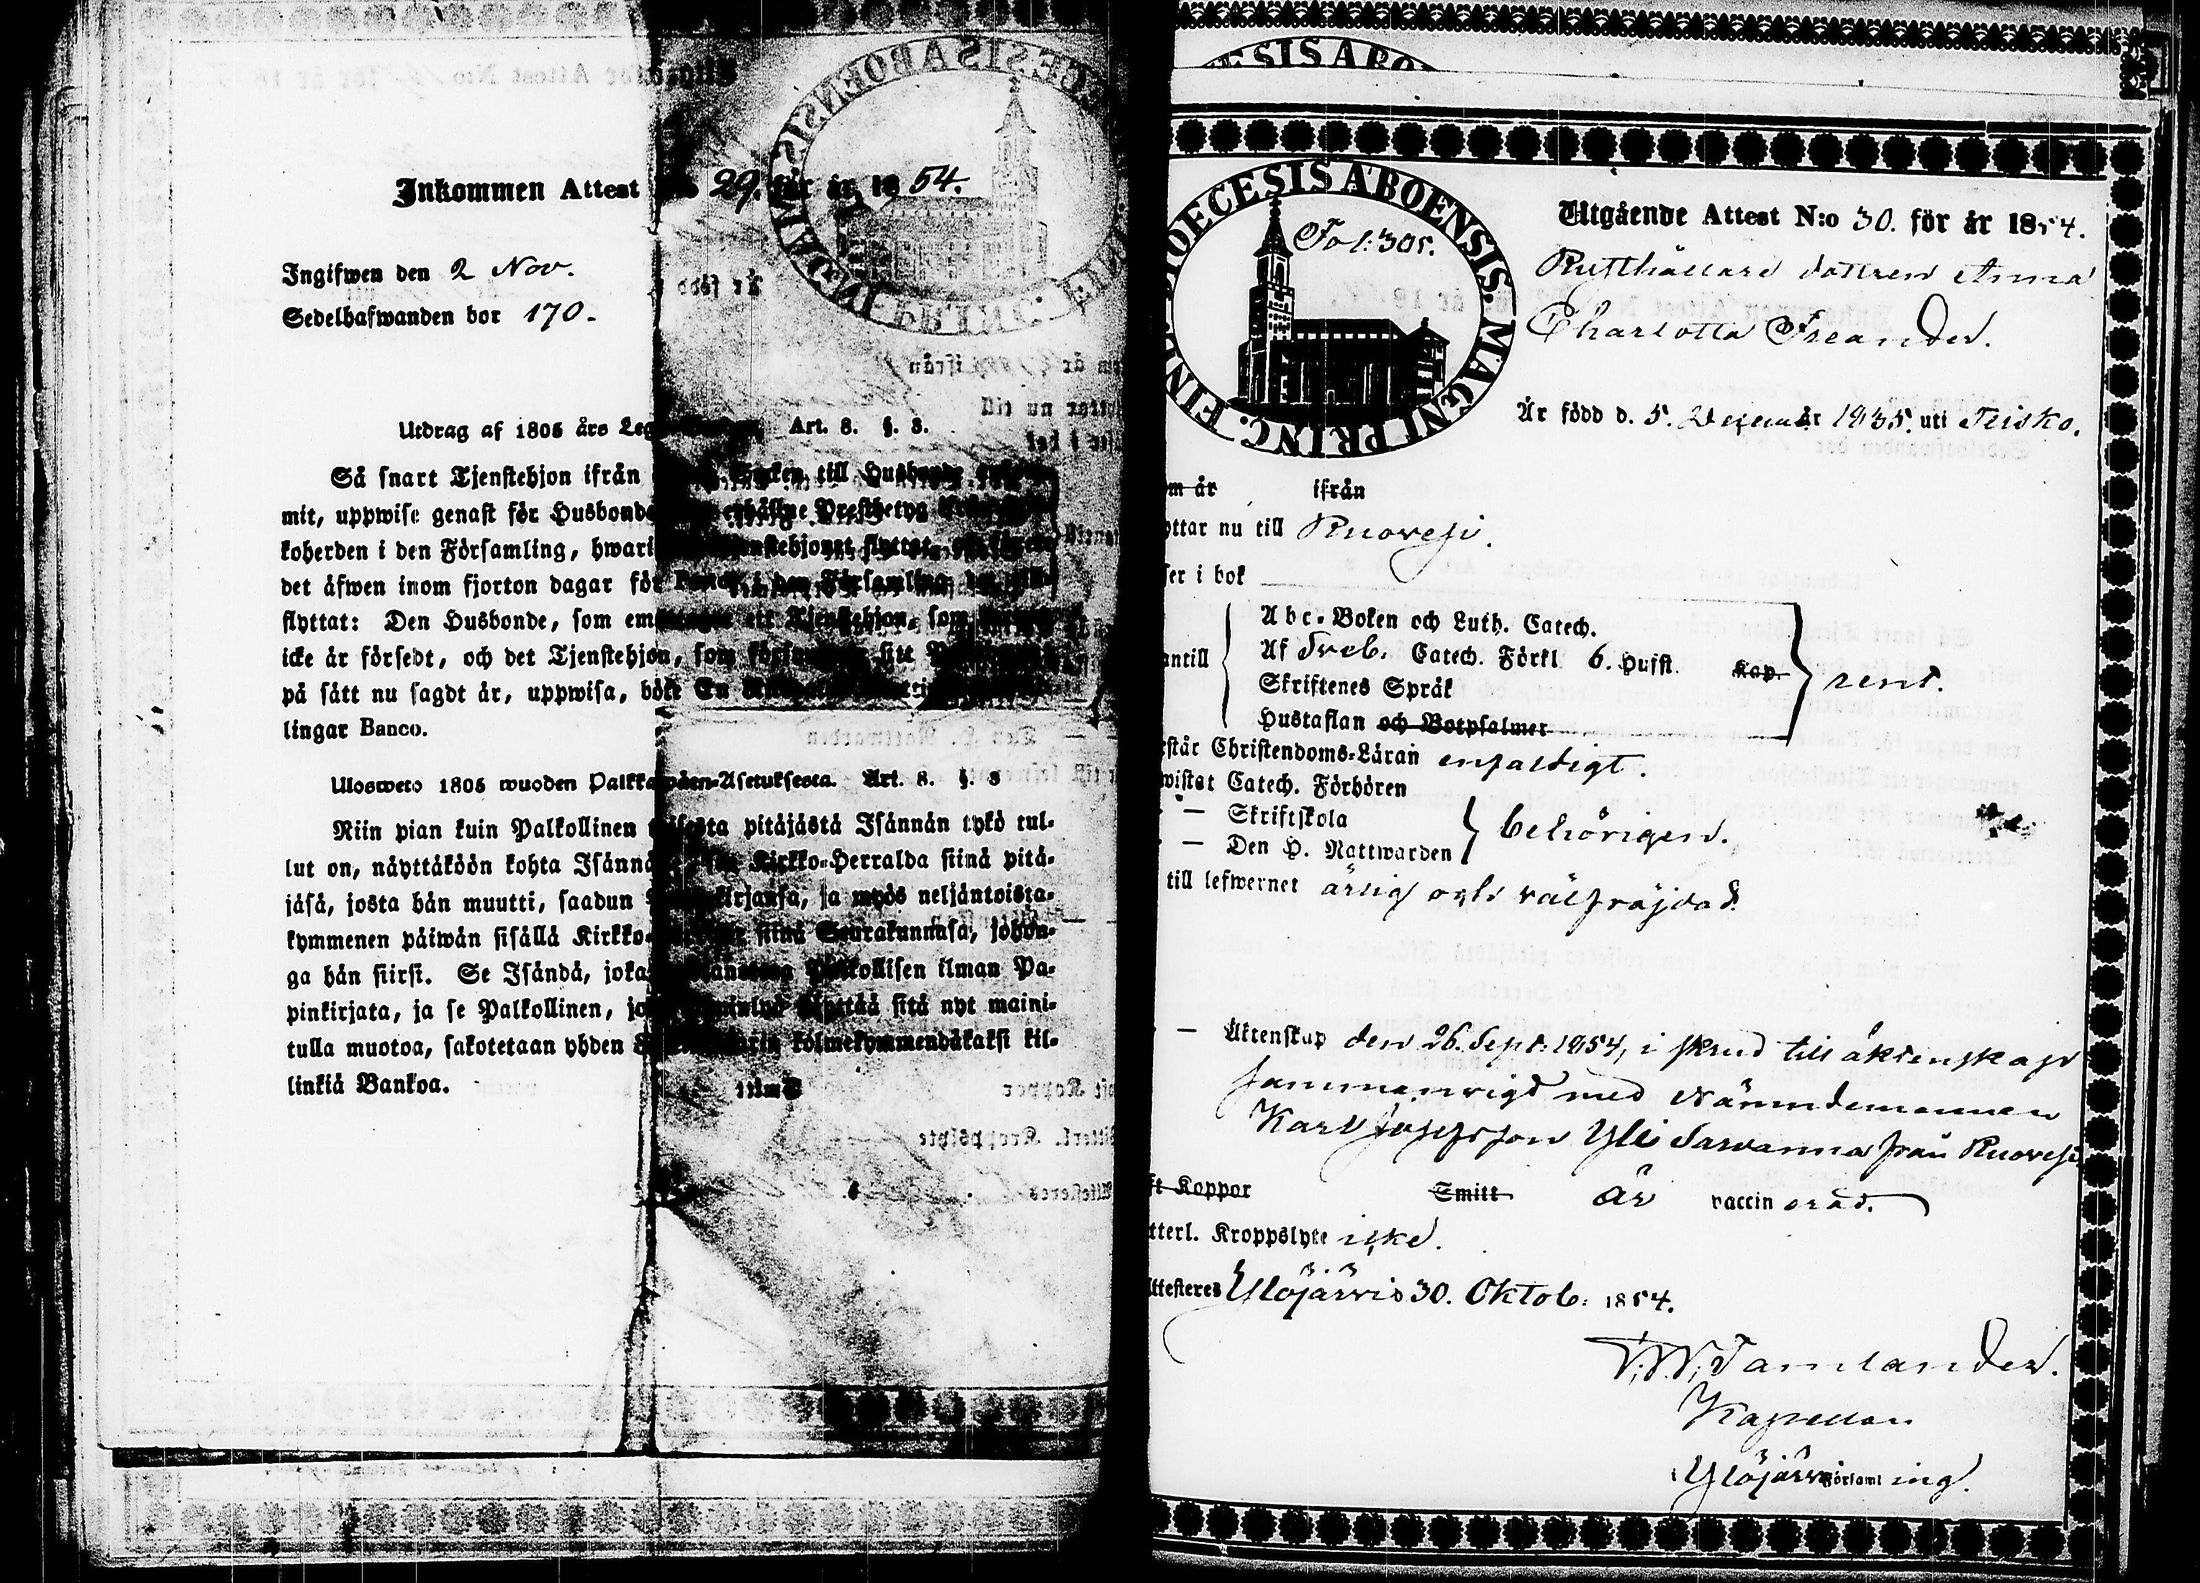 Inkommen Attest N:o 29. för år 1854.
Ingifwen den 2 Nov.
Sedelhafwanden bor 170.
Utdrag af 1805 års Art. 8. §. 8.
Så snart Tjenstehjon ifrån till Husbonde
mit, uppwise genast för Husbonde
koherden i den Församling, hwari flyttat,
det äfwen inom fjorton dagar för i den Församling
flyttat: Den Husbonde, som emottager ett Tjenstehjon, som
icke är försedt, och det Tjenstehjon, som försummar sitt
på sätt nu sagdt är, uppwisa, böte En
lingar Banco.
Ulosweto 1805 wuoden Palkkawäen-Asetuksesta. Art. 8. §. 8
Niin pian kuin Palkollinen pitäjästä Isännän tykö tul-
lut on, näyttäköön kohta Isännä Kirkko-Herralda siinä pitä-
jäsä, josta hän muutti, saadun ja myös neljäntoista-
kymmenen päiwän sisällä Kirkko- siinä Seurakunnasa, johon-
ga hän siirsi. Se Isändä, joka Palkollisen ilman Pa-
pinkirjata, ja se Palkollinen, näyttää sitä nyt maini-
tulla muotoa, sakotetaan yhden kolmekymmendäkaksi kil-
linkiä Bankoa.
DIOECESIS ABOENSIS. MAGNI PRINC. FINL.
Fol: 305.
Utgående Attest N:o 30. för år 1854.
Rusthållare dottren Anna
Charlotta Freander.
Är född d. 5. December 1835. uti Teisko.
m år ifrån
yttar nu till Ruovesi.
ser i bok
antill
Abc-Boken och Luth. Catech.
Af Sveb. Catech. Förkl 6. Hufst. Kap.
Skriftenes Språk
Hustaflan och Botpsalmer
rent.
rstår Christendoms-Läran enfaldigt.
wistat Catech. Förhören
— Skriftskola
— Den H. Nattwarden
behörigen.
till lefwernet ärlig och välfräjdad.
— Äktenskap den 26. Sept. 1854, i stånd till äktenskap
sammanvigd med Nämndemannen
Karl Josefsson Yli Sarvanna från Ruovesi
ft Koppor Smitt är vaccinerad.
tterl. Kroppslyte icke.
Attesteres Ylöjärvi 30. Oktob: 1854.
Tamlander.
Kapellan
Ylöjärvi Församling.